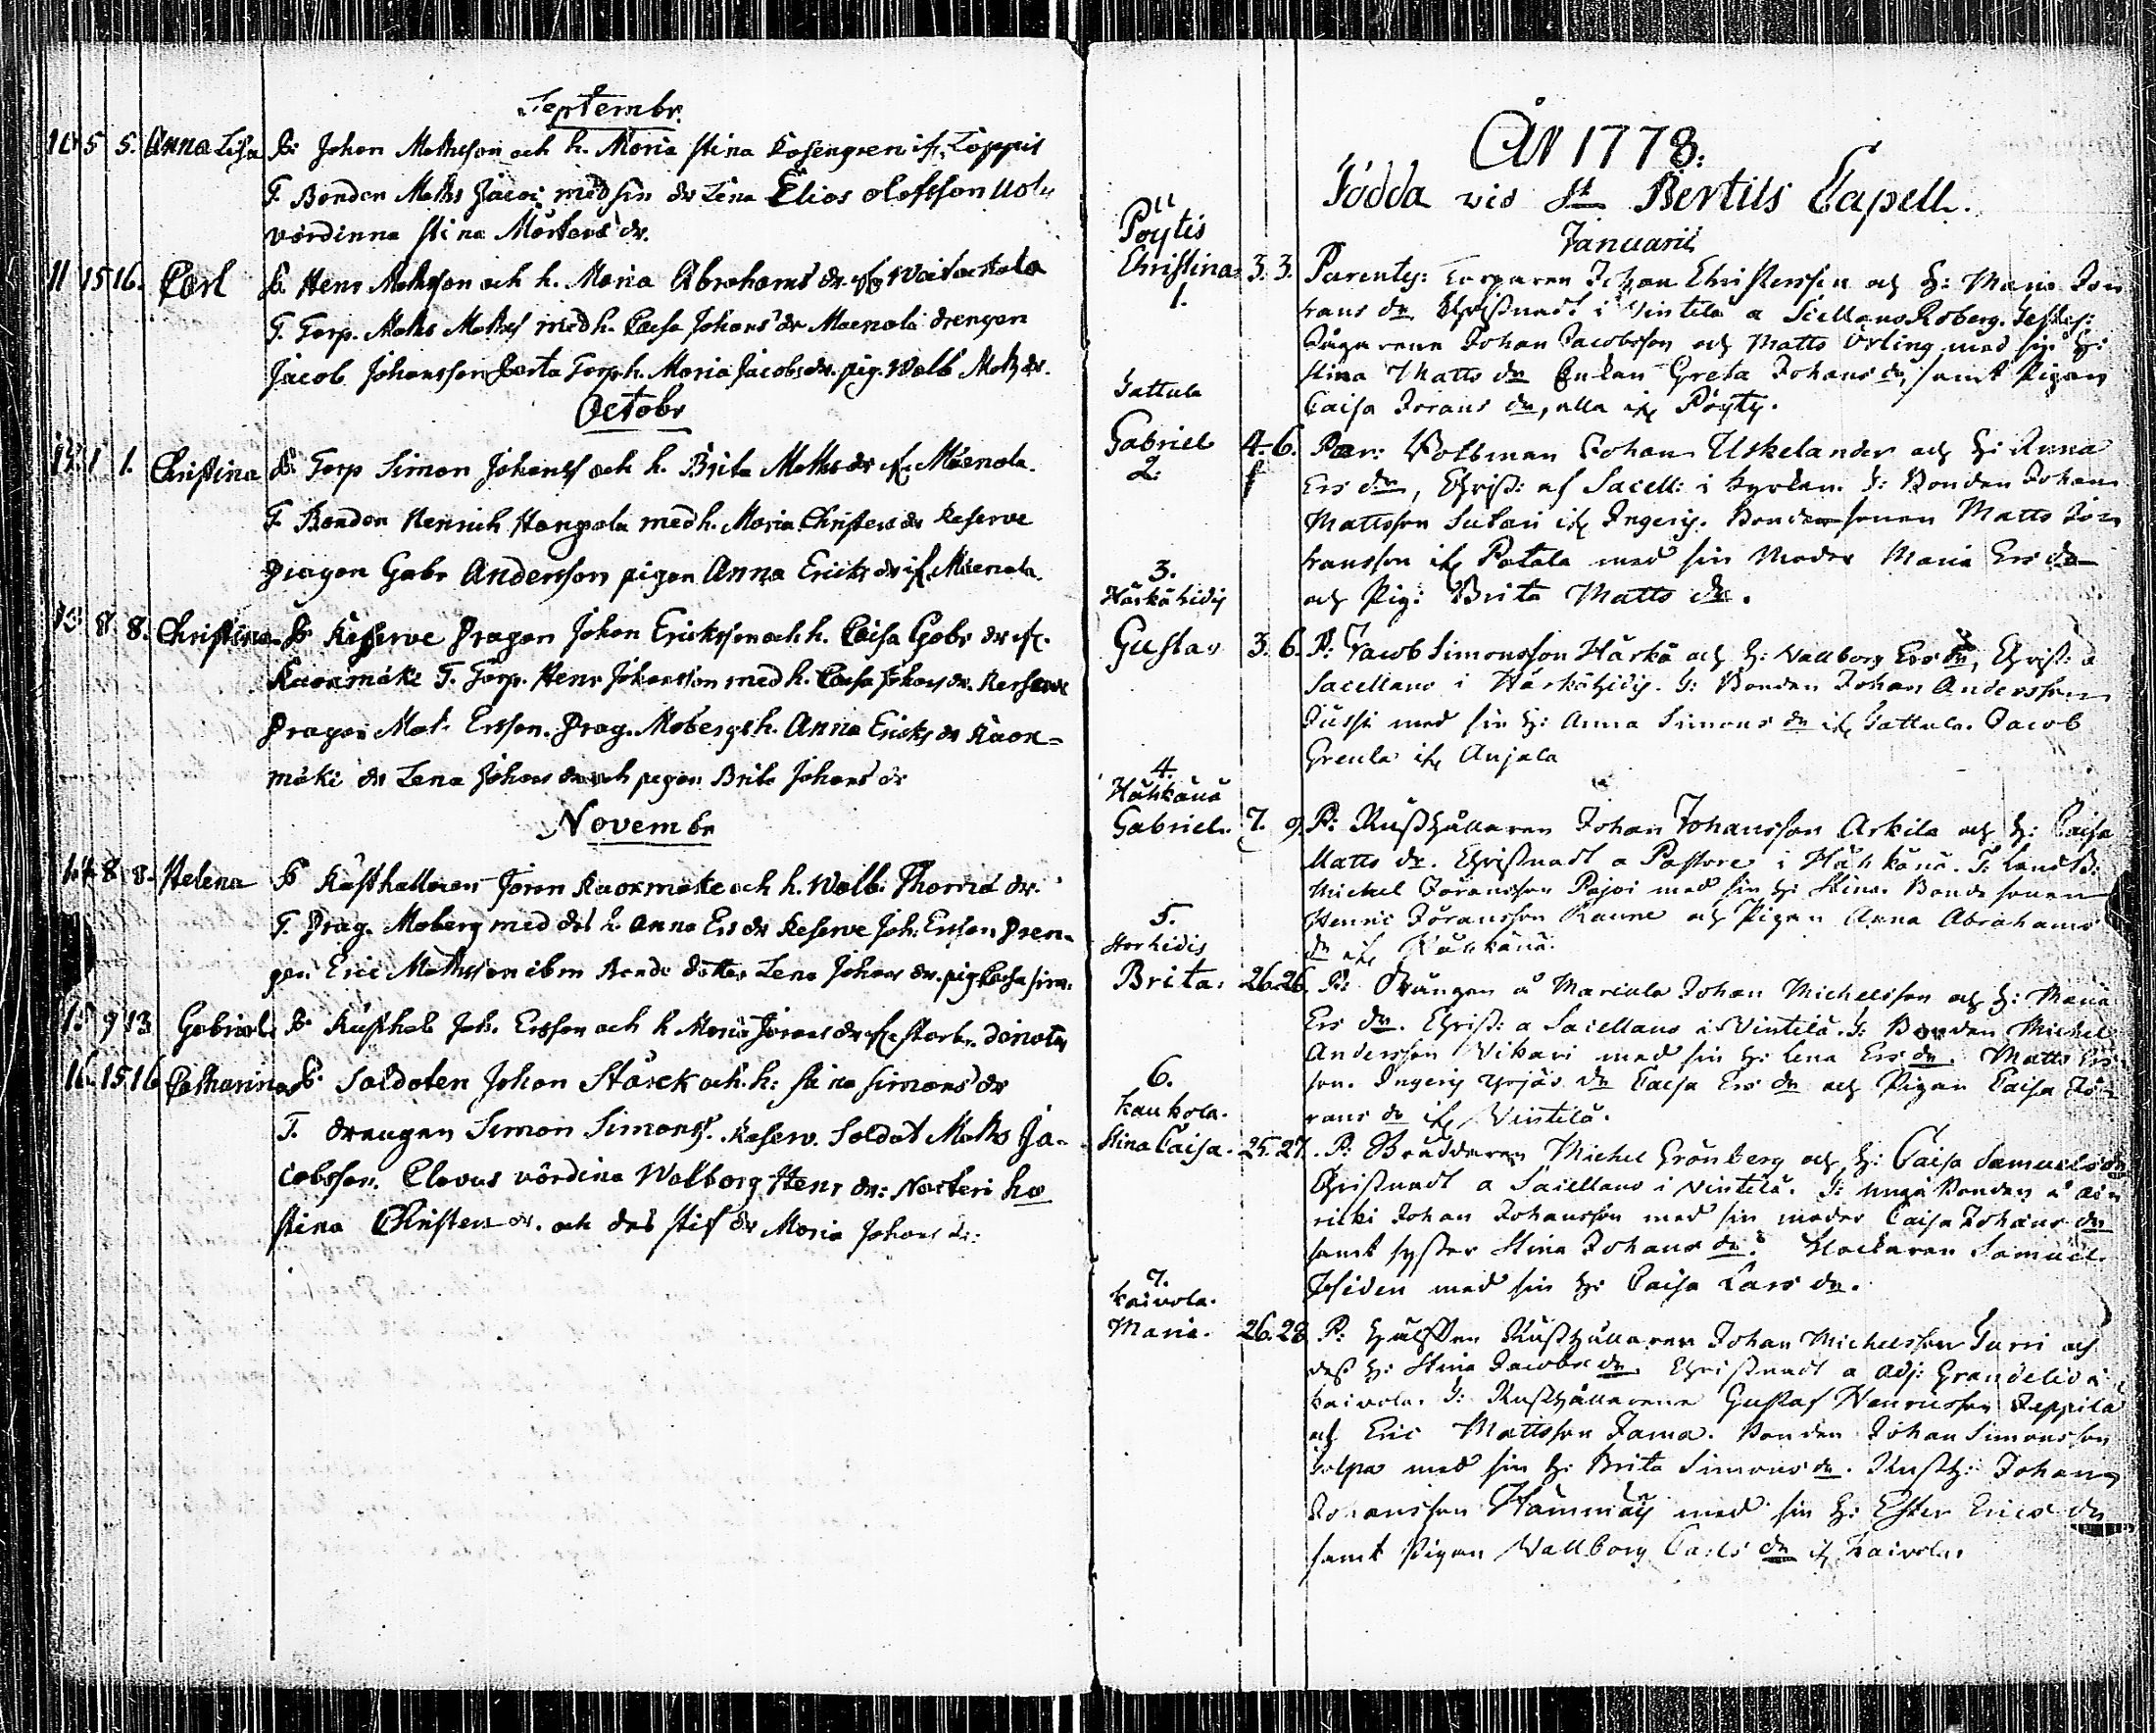 Septembr.
10 5 5. Anna Lisa F: Johan Mathsson och h. Maria Stina Rosengren if. Loppis
T. Bonden Maths Jacoi med sin dr Lena Elias Olofsson
värdinna Stina Mårtens dr.
11 15 16. Carl F. Henr Mathsson och h. Maria Abrahams dr. if.
T. Torp. Maths Maths med h. Caisa Johans dr Maenala drengen
Jacob Johansson Torp. h. Maria Jacobs dr. pig. Walb Math dr.
Octobr
12. 1 1. Christina F. Torp Simon Johans och h. Brita Maths dr if. Maenala.
T. Bonden Henrich med h. Maria Christers dr Reserve
Dragon Gabr Andersson pigan Anna Ericks dr if. Maenala.
13 8 8. Christina F. Reserve Dragon Johan Ericksson och h. Caisa Gabr dr if.
Kaoxmäki T. Torp. Henr Johansson med h. Caisa Johans dr. Reserve
Dragon Mat. Ersson. Drag. Mobergs h. Anna Ericks dr Kaox=
mäki dr Lena Johans dr och pigan Brita Johans dr
Novembr
14 8 8. Helena F Rusthallaren Joran Kaoxmäke och h. Walb. Thomæ dr.
T. Drag. Moberg med des h. Anna Ers dr Reserve Joh. Ersson Dren-
gen Eric Mathsson ibm Bonde dotter Lena Johans dr. pig Caisa Sim.
15 9 13 Gabriel F. Rusthol Joh. Ersson och h Maria Jorans dr if.
16. 15 16 Catharina F. Soldaten Johan Starck och h: Stina Simons dr
T. drengen Simon Simons. Reserv. Soldat Maths Ja-
cobsson. Clavus värdina Walborg Henr dr: ho
Stina Christers dr. och des stif dr Maria Johans dr:
År 1778:
Födda wid St Bertils Capell.
Januarii
Pöytis
Christina 3. 3. Parentes: Torparen Johan Christersson och H: Maria Jö
1.
rans dr. Christnadt i Vintelä a Sacellano Roberg. Testes:
Johan Jacobsson och Matts Örling med sin H:
Stina Matts dr Enkan Greta Johans dr, samt Pigan
Caisa Jörans dr, alla if. Pöyty.
Tattula
Gabriel 4. 6. Par: Johan Uskelander och H: Anna
2.
Ers dr, Christ: af Sacell: i Kyrkan. T: Bonden Johan
Mattsson Sukari if. Ingeris. Bondesonen Matts Jö
ransson if. Patala med sin Moder Maria Ers dr
och Pig: Brita Matts dr.
3.
Härkähidis
Gustav 3. 6. P: Jacob Simonsson Härkä och H: Wallborg Ers dr, Christ: a
Sacellano i Härkähidis. T: Bonden Johan Andersson
Jussi med sin H: Anna Simons dr if. Tattula. Jacob
Greula if. Anjala
4.
Häntkänä
Gabriel. 7. 9. P: Rusthållaren Johan Johansson Arkila och H: Caisa
Matts dr. Christnadt a Pastore i
Michel Jöransson Pajoi med sin H: Stina. Bonde sonen
Henric Jöransson Raune och Pigan Anna Abrahams
dr if.
5.
Horhidis
Brita. 26. 26. P: Drängen å Marcula Johan Michelsson och H: Maria
Ers dr. Christ: a Sacellano i Vintelä. T: Bonden Michel
Andersson Vikari med sin H: Lena Ers dr. Matts Ers
son. Ingeris Yrjäs dr Caisa Ers dr och Pigan Caisa Jö
rans dr if. Vintelä.
6.
Kaukola.
Stina Caisa. 25. 27. P: Michel Grönberg och H: Caisa Samuels dr
Christnadt a Sacellano i Vintelä. T: Unga Bonden å
Johan Johansson med sin moder Caisa Johans dr
samt syster Stina Johans dr. Samuel
Isiden med sin H: Caisa Lars dr.
7.
Kaivola.
Maria. 26. 28. P: Rusthållaren Johan Michelsson Turri och
dess H: Stina Jacobs dr. Christnadt a Adj: Grandelio i
Kaivola. T: Rusthållarena Gustaf Henricsson Seppilä
och Eric Mattsson Jama. Bonden Johan Simonsson
med sin H: Brita Simons dr. Rusth: Johan
Johansson Hammais med sin H: Ester Erics dr
samt Pigan Wallborg Carls dr if. Kaivola.